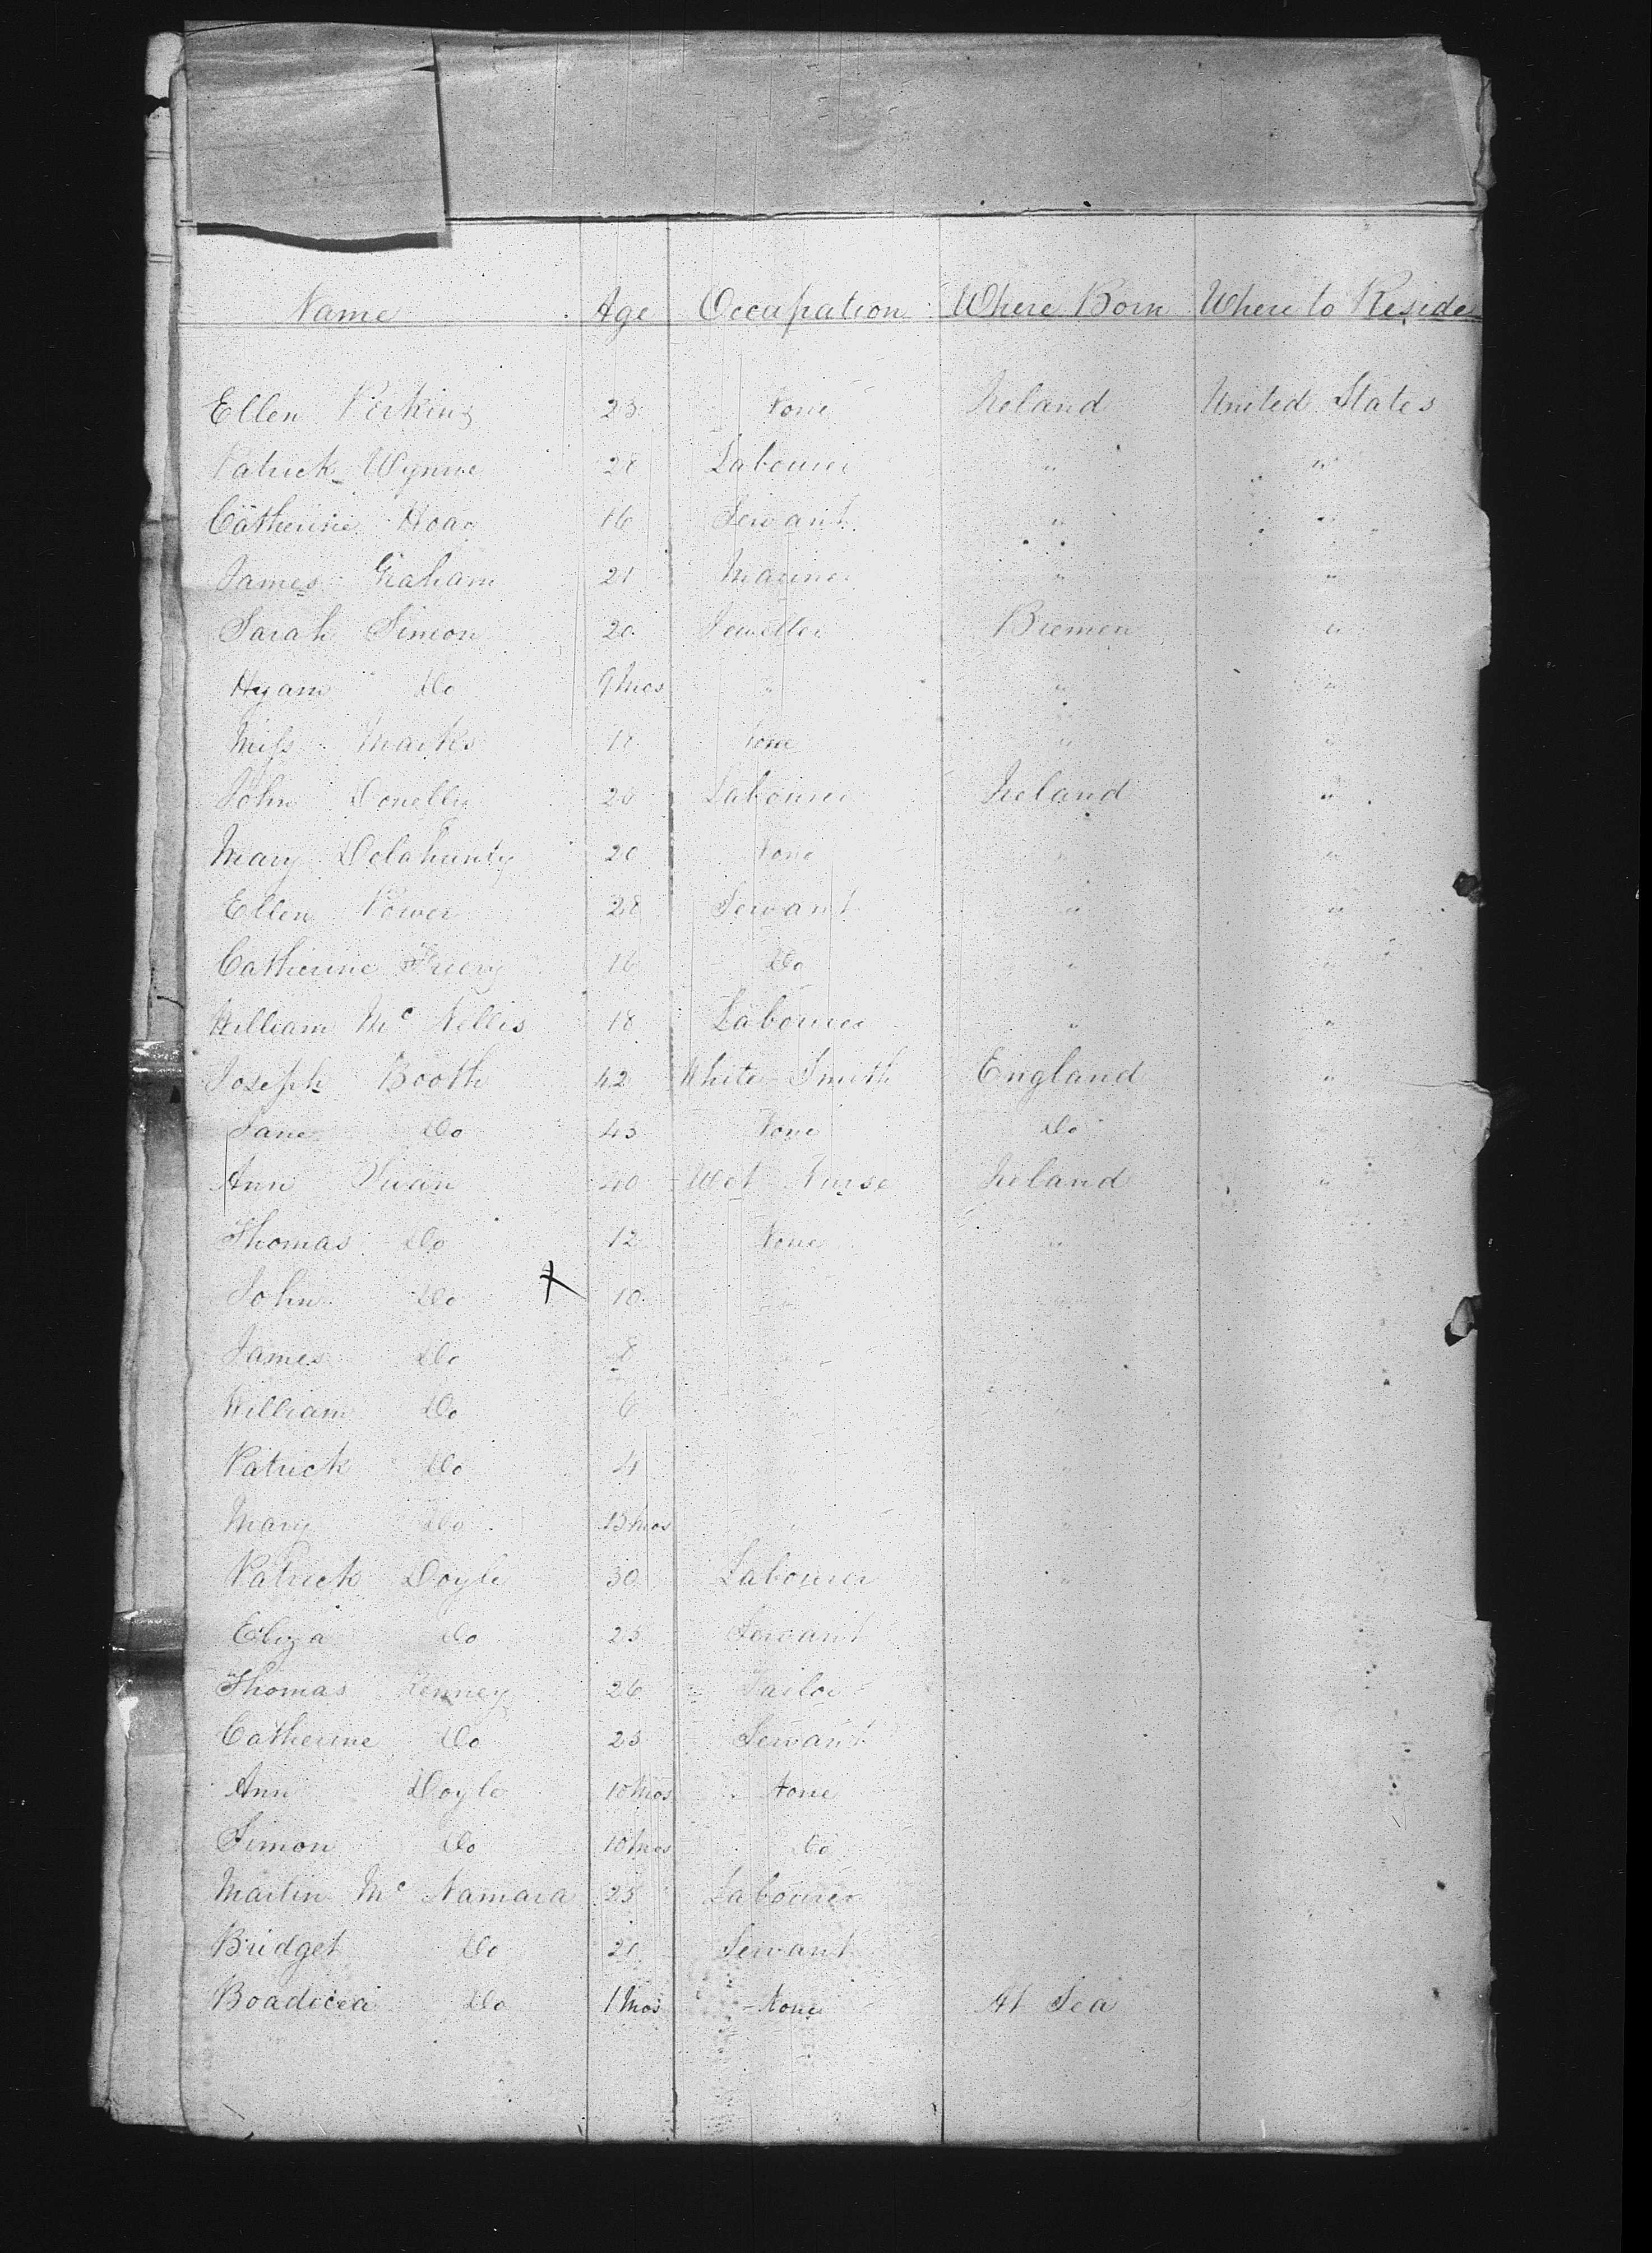 Name Age Occupation Where Born Where to Reside
Ellen Perkins 23 None Ireland United States
Patrick Wynne 28 Labourer " "
Catherine Hoar 16 Servant " "
James Graham 21 Mariner " "
Sarah Simeon 20 Jeweller Bremen "
Hyam Do 9 Mos " " "
Miss Marks 18 None " "
John Donelly 20 Labourer Ireland "
Mary Delahunty 20 None " "
Ellen Power 28 Servant " "
Catherine 16 Do " "
William Mc Nellis 18 Labourer " "
Joseph Booth 42 White-Smith England "
Jane Do 43 None Do
Ann 40 Wet-Nurse Ireland "
Thomas Do 12 None "
John Do X 10
James Do 8
William Do 6
Patrick Do 4 "
Mary Do 13 Mos "
Patrick Doyle 30 Labourer "
Eliza Do 25 Servant
Thomas Kenney 26 Sailor
Catherine Do 25 Servant
Ann Doyle 10 Mos None
Simon Do 10 Mos Do
Martin Mc Namara 25 Labourer
Bridget Do 20 Servant
Boadicea Do 1 Mos None At Sea